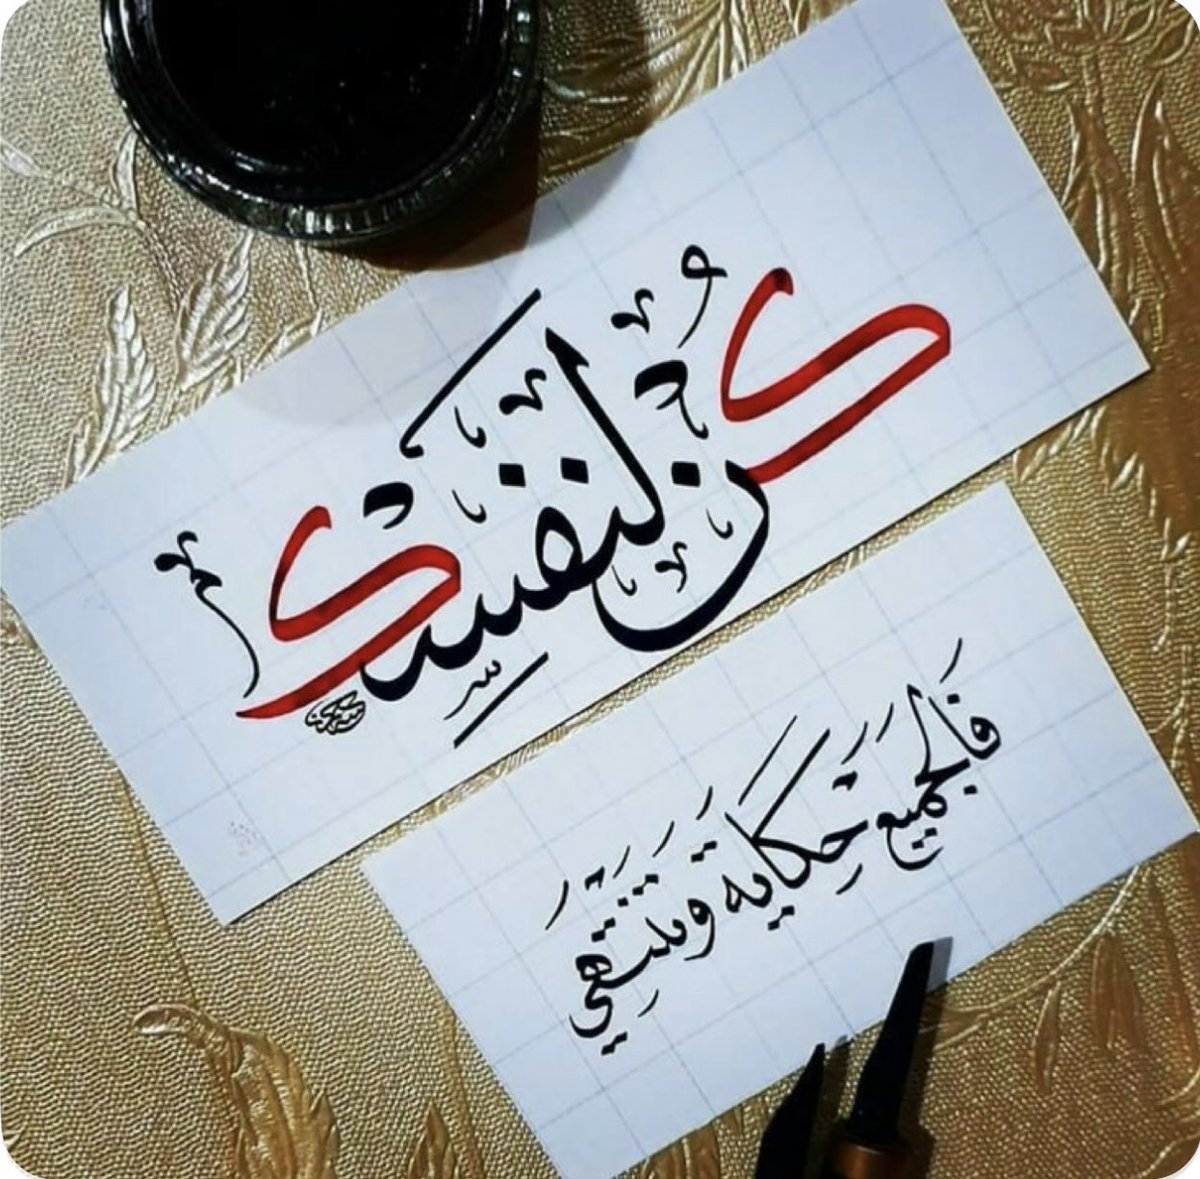 كُن لنفسِك
فَالجَميع حِكَاية وتَنتَهي